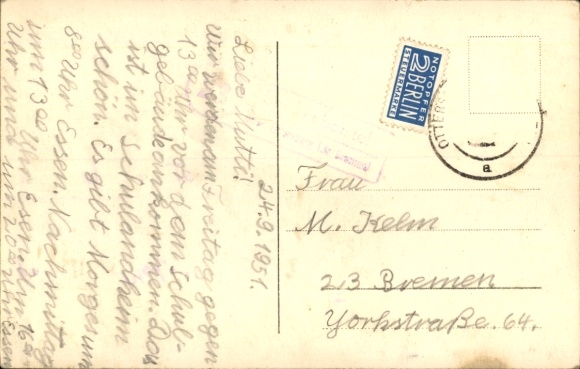 24.9.1951.
Liebe Mutti!
Wir werden am Freitag gegen
13 00 Uhr vor dem Schul-
gebäude ankommen. Das
ist im Schulandheim
schön. Es gibt Morgens um
8 00 Uhr Essen. Nachmittag
um 13 00 Uhr Esen. Um 16 00
Uhr und um 20 00 Uhr Essen
NOTOPFER
2 BERLIN
STEUERMARKE
OTTERS
a
Frau
M. Kelm
23 Bremen
Yorkstraße 64.